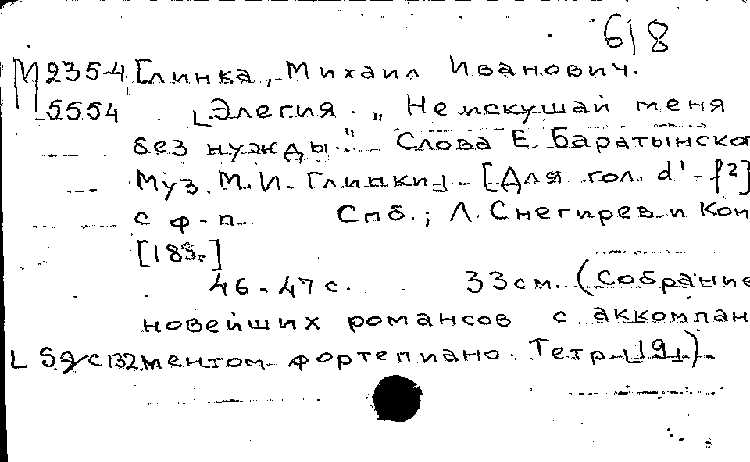 618
М 235-4 Глинка, Михаил Иванович.
5554 [Элегия. „Не искушай меня
без нужды." Слова Е. Баратынско
Муз. М. И. Глинки]. [Для гол. d¹-f²]
с ф-п. Спб.; Л. Снегирев и Ком
[183-]
46-47 с. 33 см. (Собрание
новейших романсов с аккомпан
ментом фортепиано. Тетр. [9])